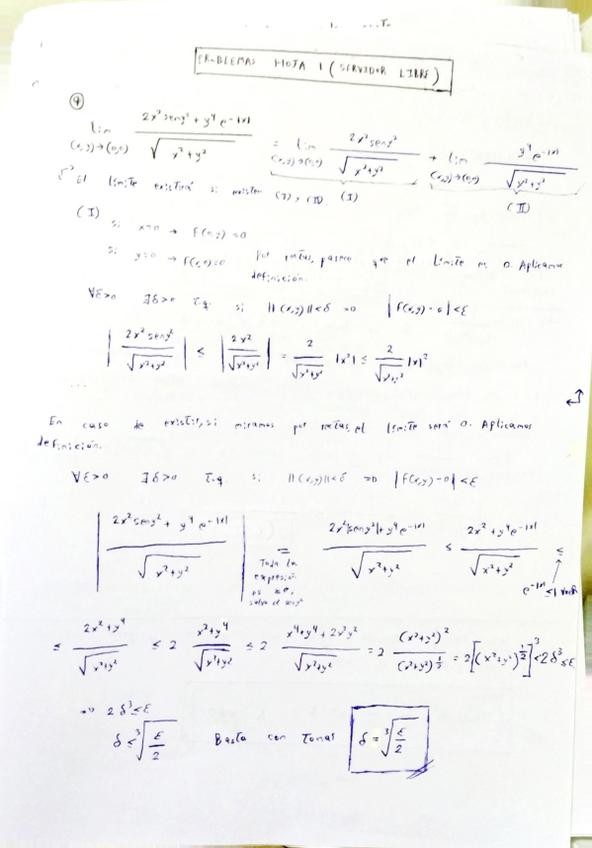 PROBLEMAS HOJA 1 (SERVIDOR LIBRE)
④
lim (x,y)→(0,0) (2x² sen y² + y⁴ e^-|x|) / √(x²+y²) = lim (x,y)→(0,0) (2x² sen y²) / √(x²+y²) + lim (x,y)→(0,0) (y⁴ e^-|x|) / √(x²+y²)
(I) (II)
El límite existirá si existen (I) y (II)
(I)
si x=0 → f(0,y)=0
si y=0 → f(x,0)=0 Por rectas, parece que el límite es 0. Aplicamos
definición.
∀ε>0 ∃δ>0 t.q. si ||(x,y)||<δ ⇒ |f(x,y)-0|<ε
|(2x² sen y²) / √(x²+y²)| ≤ |2x² / √(x²+y²)| = 2/√(x²+y²) |x²| ≤ 2/√(x²+y²) |x|²
...
En caso de existir, si miramos por rectas, el límite será 0. Aplicamos
definición.
∀ε>0 ∃δ>0 t.q. si ||(x,y)||<δ ⇒ |f(x,y)-0|<ε
|(2x² sen y² + y⁴ e^-|x|) / √(x²+y²)| = (2x²|sen y²| + y⁴ e^-|x|) / √(x²+y²) ≤ (2x² + y⁴ e^-|x|) / √(x²+y²) ≤
Toda la
expresión
es ≥0,
salvo el sen y²
e^-|x| ≤ 1
≤ (2x²+y⁴) / √(x²+y²) ≤ 2 (x²+y⁴) / √(x²+y²) ≤ 2 (x⁴+y⁴+2x²y²) / √(x²+y²) = 2 (x²+y²)² / (x²+y²)^½ = 2[(x²+y²)^½]³ < 2δ³ ≤ ε
⇒ 2δ³ ≤ ε
δ ≤ ∛(ε/2) Basta con tomar δ = ∛(ε/2)